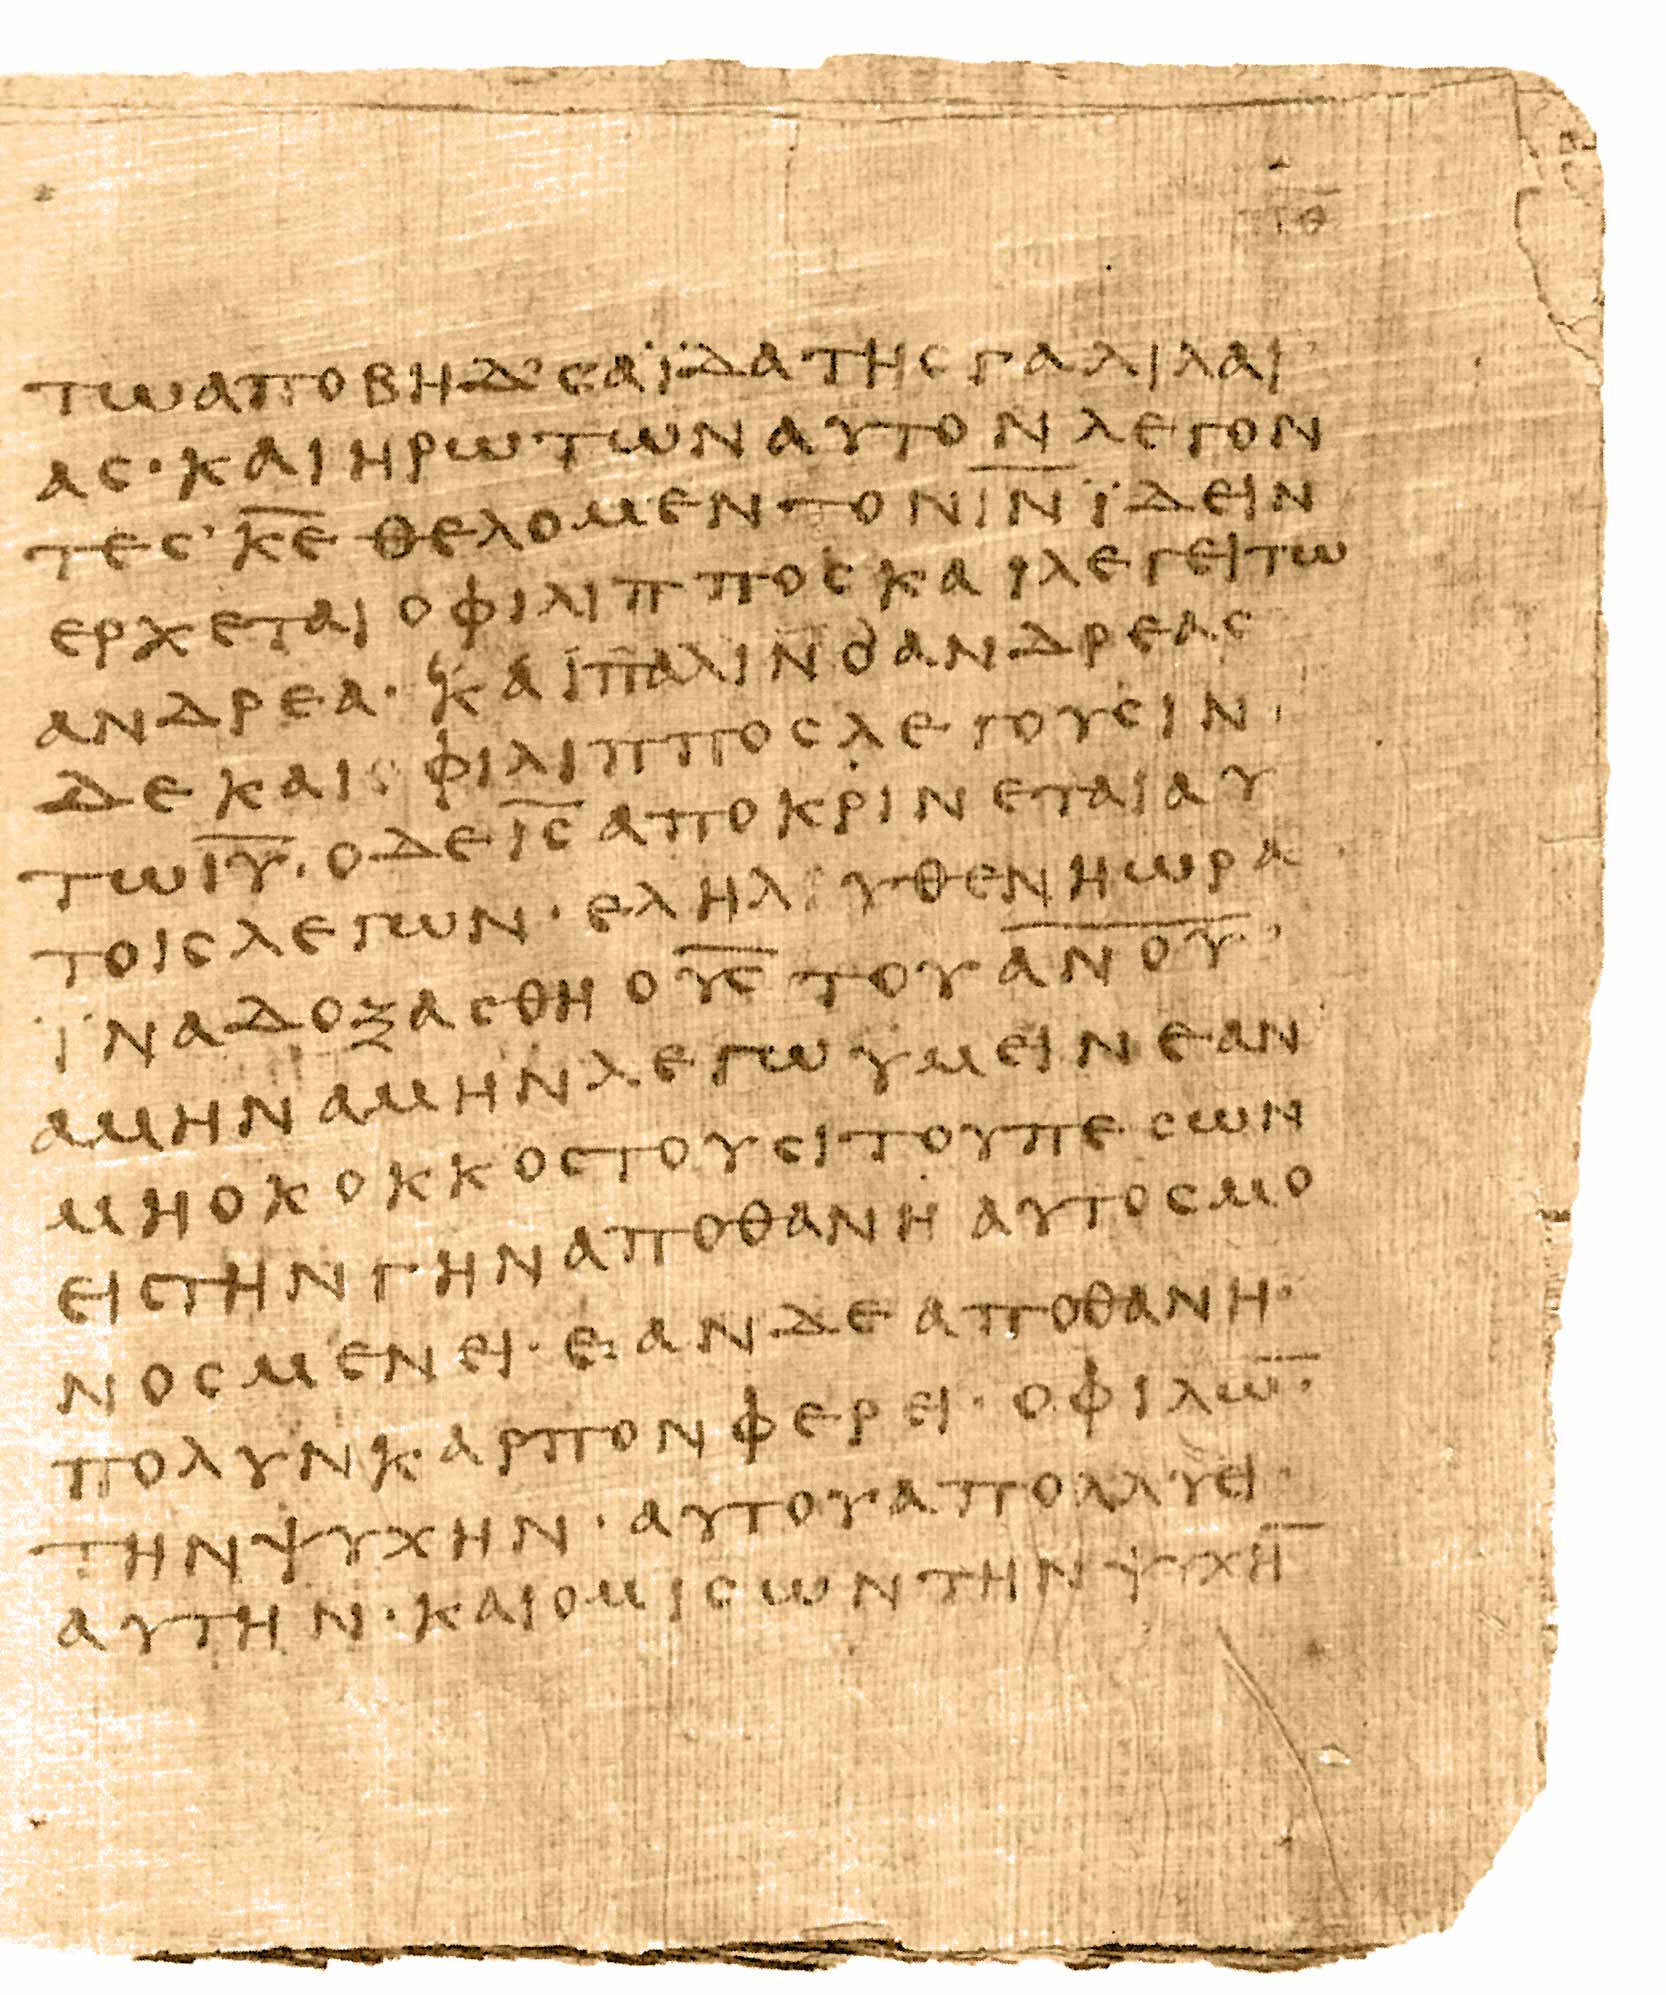 ΤΩΑΠΟΒΗΔ’ϹΑΪΔΑΤΗϹΓΑΛΙΛΑΙ
ΑϹ·ΚΑΙΗΡΩΤΩΝΑΥΤΟΝΛΕΓΟΝ
ΤΕϹ’Κ̅Ε̅ΘΕΛΟΜΕΝΤΟΝΙ̅Ν̅ΪΔΕΙΝ
ΕΡΧΕΤΑΙΟΦΙΛΙΠΠΟϹΚΑΙΛΕΓΕΙΤΩ
ΑΝΔΡΕΑ·ΚΑΙΠΑΛΙΝΟΑΝΔΡΕΑϹ
ΔΕΚΑΙΦΙΛΙΠΠΟϹΛΕΓΟΥϹΙΝ
ΤΩΙ̅Υ̅·ΟΔΕΙ̅Ϲ̅ΑΠΟΚΡΙΝΕΤΑΙΑΥ
ΤΟΙϹΛΕΓΩΝ·ΕΛΗΛΥΘΕΝΗΩΡΑ
ΪΝΑΔΟΞΑϹΘΗΟΥ̅Ϲ̅ΤΟΥΑ̅Ν̅Ο̅Υ̅
ΑΜΗΝΑΜΗΝΛΕΓΩΥΜΕΙΝΕΑΝ
ΜΗΟΚΟΚΚΟϹΤΟΥϹΙΤΟΥΠΕϹΩΝ
ΕΙϹΤΗΝΓΗΝΑΠΟΘΑΝΗΑΥΤΟϹΜΟ
ΝΟϹΜΕΝΕΙ·ΕΑΝΔΕΑΠΟΘΑΝΗ·
ΠΟΛΥΝΚΑΡΠΟΝΦΕΡΕΙ·ΟΦΙΛΩ̅·
ΤΗΝΨΥΧΗΝ·ΑΥΤΟΥΑΠΟΛΛΥΕΙ·
ΑΥΤΗΝ·ΚΑΙΟΜΙϹΩΝΤΗΝΨΥΧΗ̅